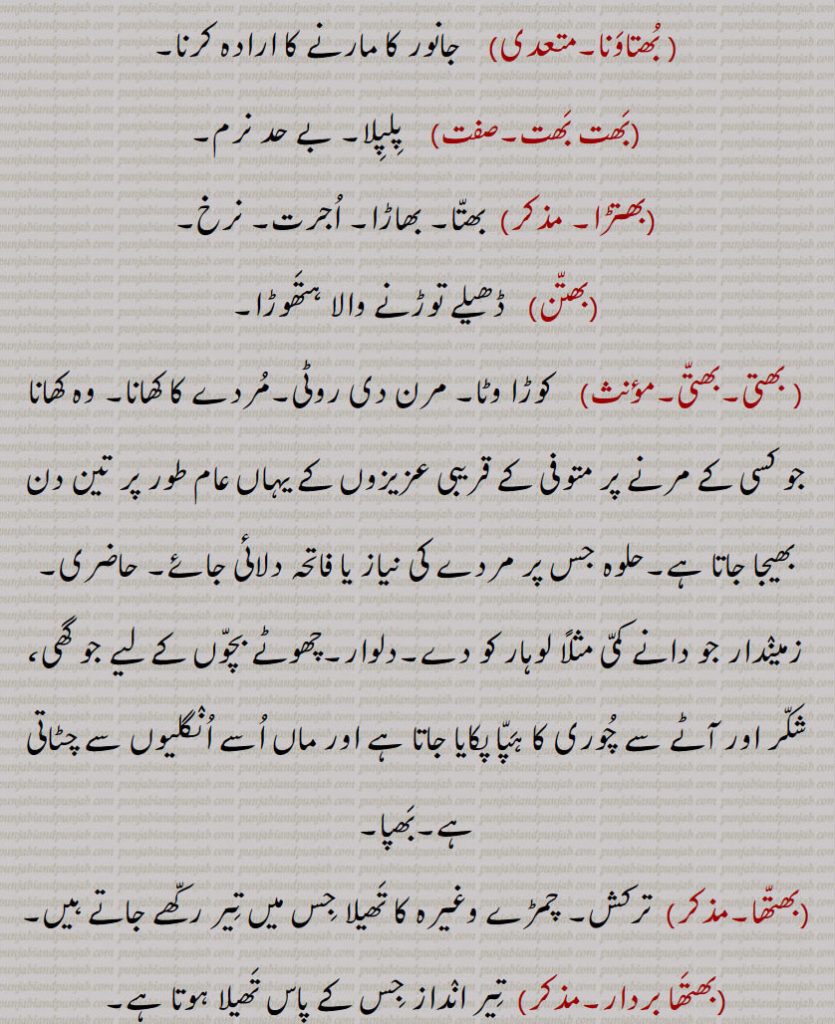 (بُھتاوَنا۔متعدی) جانور کا مارنے کا ارادہ کرنا۔
(بَھت بَھت۔صفت) پِلپِلا۔ بے حد نرم۔
(بھتڑا۔ مذکر) بھتّا۔ بھاڑا۔ اُجرت۔ نرخ۔
(بھتّن) ڈھیلے توڑنے والا ہتَھوڑا۔
(بھتی۔بھتّی۔مؤنث) کوڑا وٹا۔ مرن دی روٹی۔مُردے کا کھانا۔ وہ کھانا
جو کسی کے مرنے پر متوفی کے قریبی عزیزوں کے یہاں عام طور پر تین دن
بھیجا جاتا ہے۔حلوہ جس پر مردے کی نیاز یا فاتحہ دلائی جائے۔ حاضری۔
زمینْدار جو دانے کمّی مثلاً لوہار کو دے۔دلوار۔چھوٹے بچّوں کے لیے جو گھی،
شکّر اور آٹے سے چُوری کا ہَپّا پکایا جاتا ہے اور ماں اُسے اُنْگلیوں سے چٹاتی
ہے۔بَھپا۔
(بھتّھا۔مذکر) ترکش۔ چمڑے وغیرہ کا تَھیلا جِس میں تِیر رکّھے جاتے ہیں۔
(بھتھَا بردار۔مذکر) تِیر انْداز جِس کے پاس تَھیلا ہوتا ہے۔
punjabiandpunjab.com